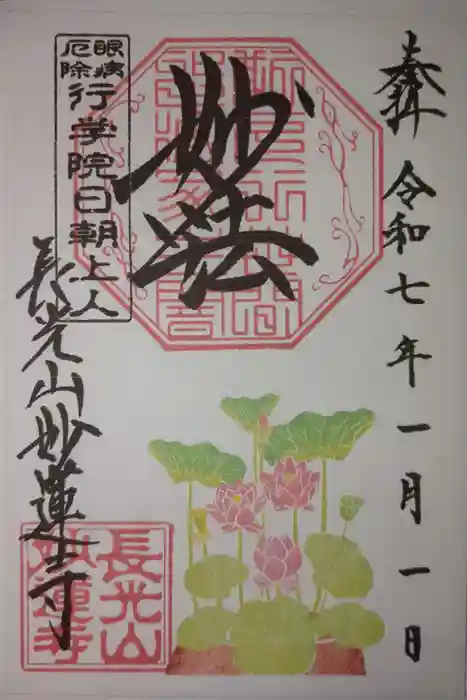 奉拝 令和七年一月一日
妙法
眼病
厄除
行学院日朝上人
長光山妙蓮寺
長光山
妙蓮寺